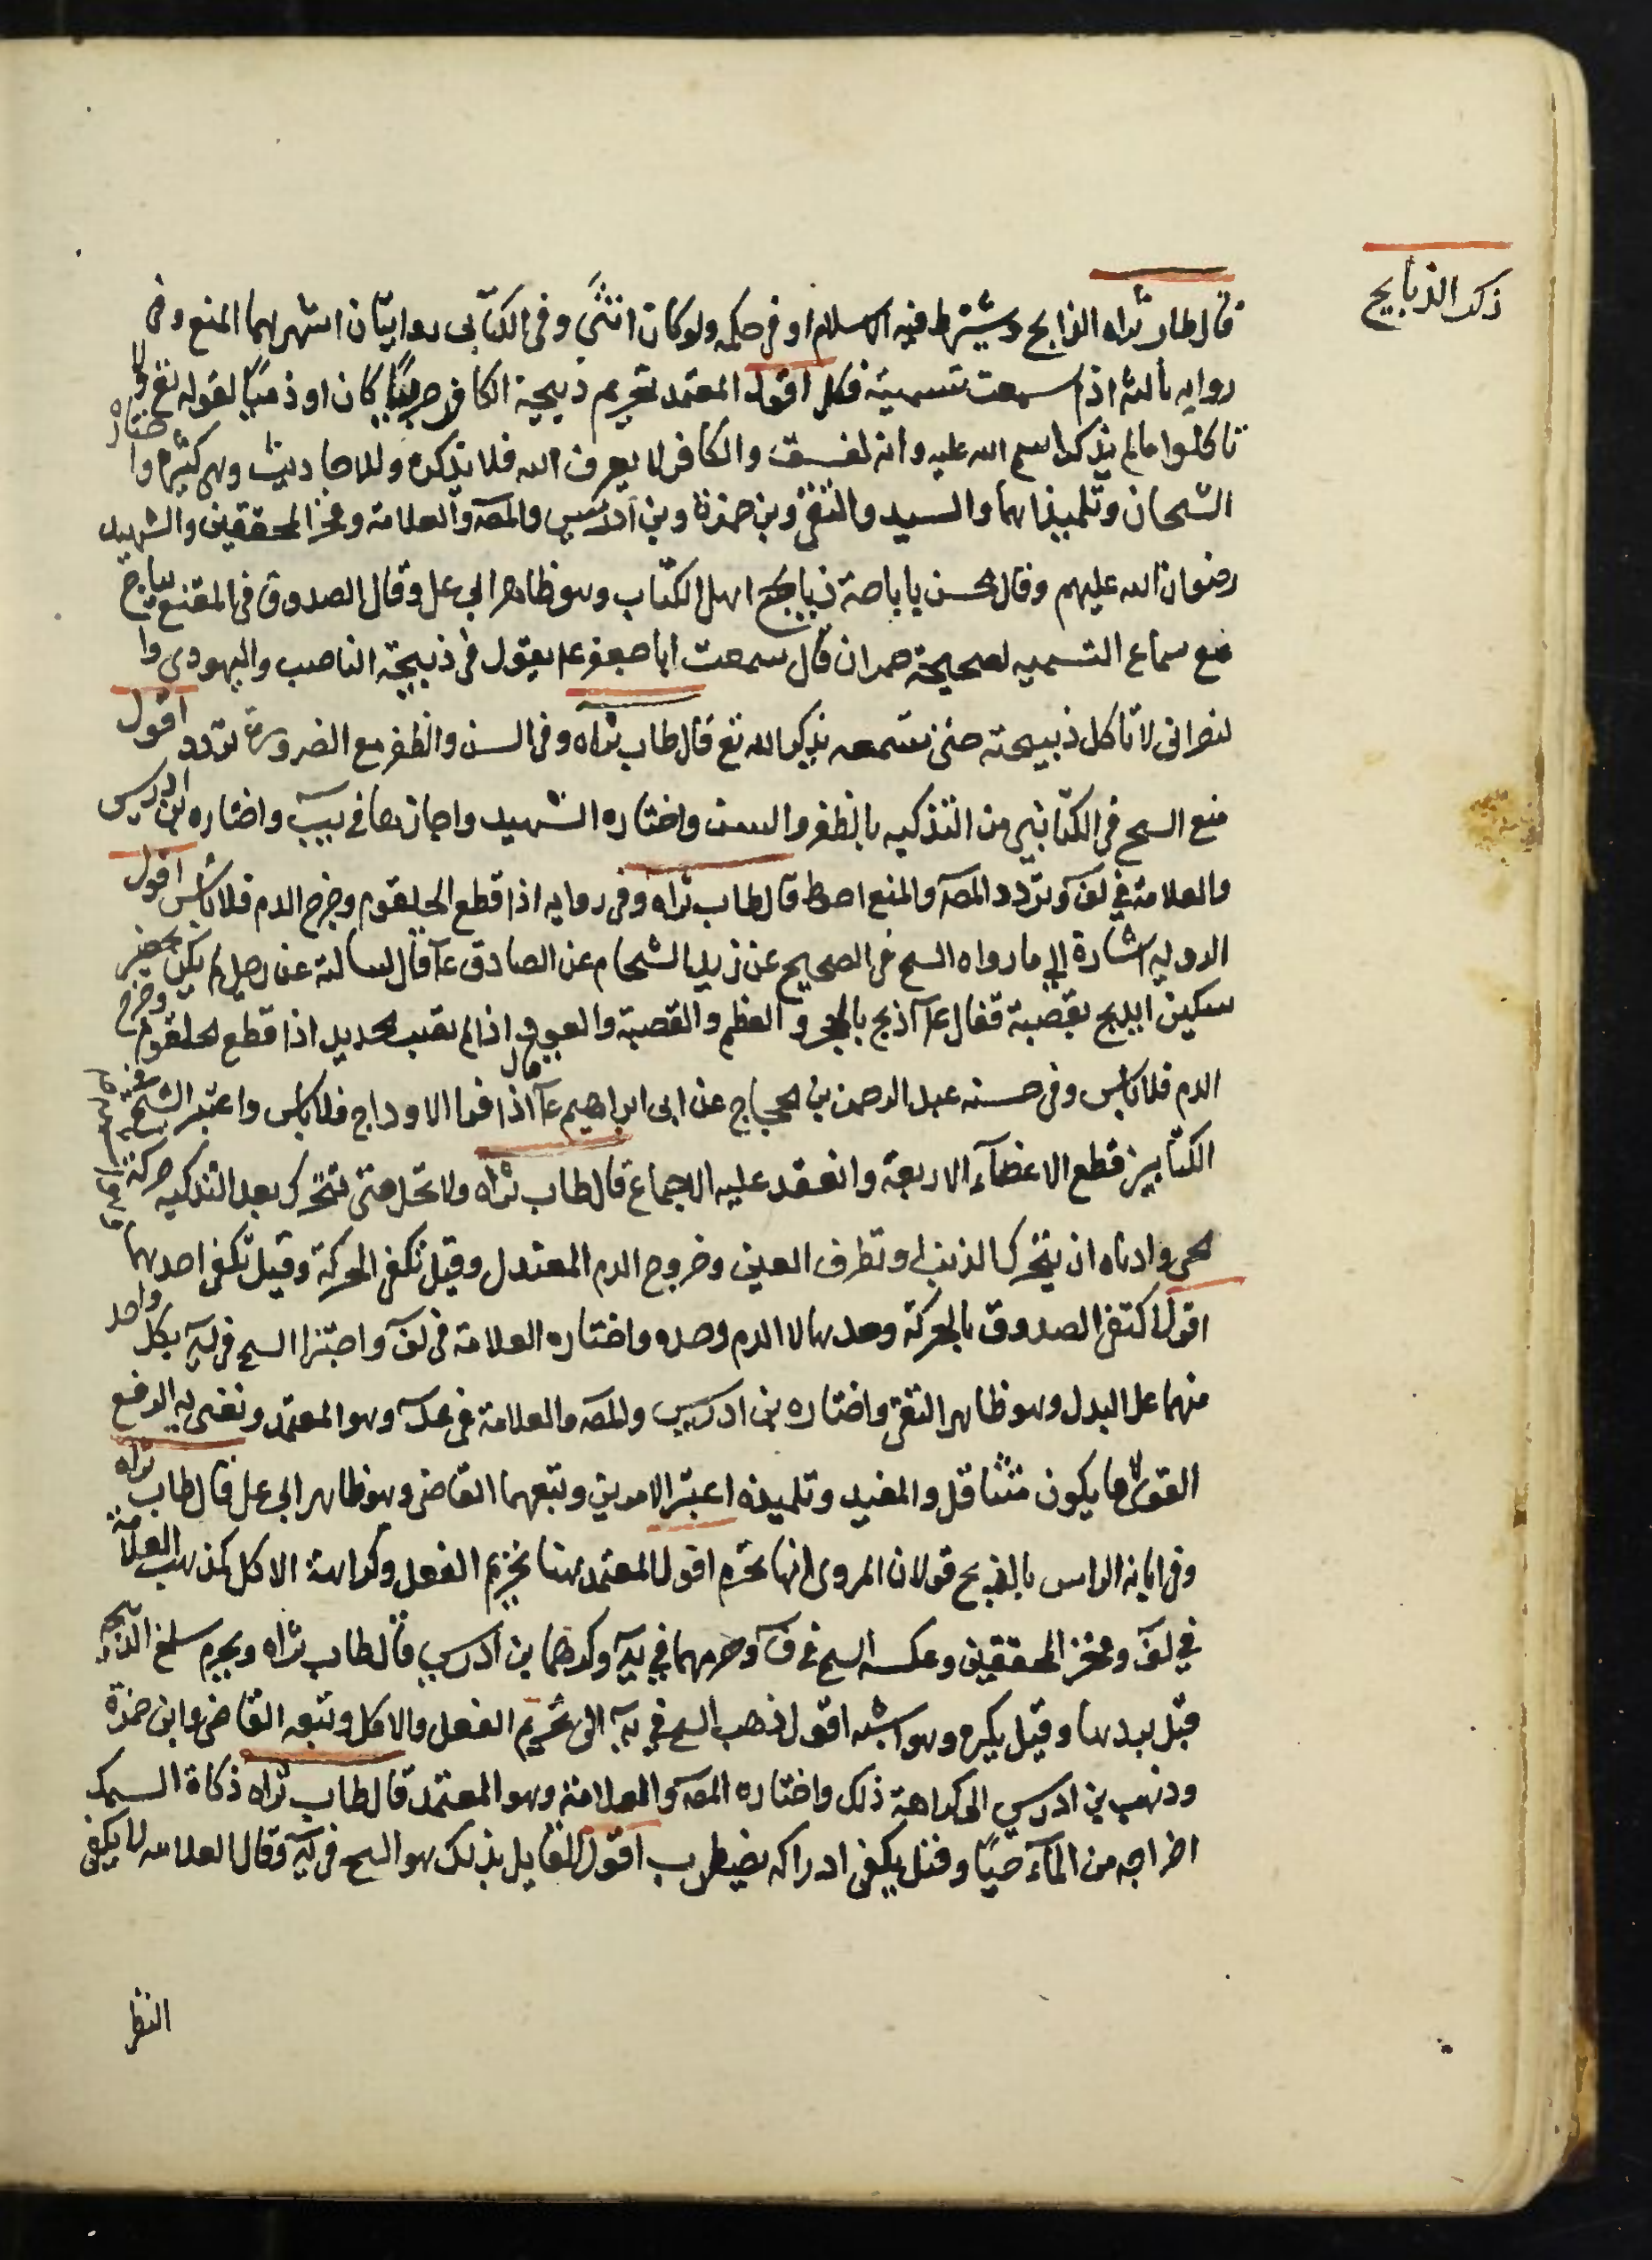 ذكر الذبايح
قال طاب ثراه الذابح ويشترط فيه الاسلام او في حكمه ولو كان انثى وفي الكتابي روايتان اشهرهما المنع وفي
رواية ثالثة اذا سمعت تسميته فكل اقول المعتمد تحريم ذبيحة الكافر حربيًا كان او ذميًا لقوله تع ولا
تاكلوا مالم يذكر اسم الله عليه وانه لفسق والكافر لا يعرف الله فلا يذكره وللاحاديث وهي كثيرة واختاره
الشيخان وتلميذاهما والسيد والتقي وبن حمزة وبن ادريس والمصـ والعلامة وفخر المحققين والشهيد
رضوان الله عليهم وقال الحسن باباحة ذبايح اهل الكتاب وهو ظاهر ابي علي وقال الصدوق في المقنع يباح
مع سماع التسميه لصحيحة حمران قال سمعت ابا جعفر ع يقول في ذبيحة الناصب واليهودي وا
لنصراني لا تاكل ذبيحته حتى تسمعه يذكر الله تع قال طاب ثراه وفي السن والظفر مع الضرورة تردد اقول
منع الشيخ في الكتابين من التذكيه بالظفر والسن واختاره الشهيد واجازهما في يب واختاره ابن ادريس
والعلامة في لف وتردد المصـ والمنع احوط قال طاب ثراه وفي رواية اذا قطع الحلقوم وخرج الدم فلا باس اقول
الرواية اشارة الى ما رواه الشيخ في الصحيح عن زيد الشحام عن الصادق ع قال سالته عن رجل لم يكن بحضرته
سكين ايذبح بقصبة فقال ع اذبح بالحجر والعظم والقصبة والعود اذا لم تصب الحديد اذا قطع الحلقوم وخرج
الدم فلا باس وفي حسنه عبد الرحمن بن الحجاج عن ابي ابراهيم ع قال اذا فرا الاوداج فلا باس واعتبر الشيخ في
الكتابين قطع الاعضآء الاربعة وانعقد عليه الاجماع قال طاب ثراه ولا تحل حتى تتحرك بعد التذكيه حركة
الحي وادناه ان يتحرك الذنب او تطرف العين وخروج الدم المعتدل وقيل تكفي الحركة وقيل تكفي احدهما
اقول اكتفى الصدوق بالحركة وحدها لا الدم وحده واختاره العلامة في لف واجتزا الشيخ في يه بكل واحد
منهما على البدل وهو ظاهر التقي واختاره بن ادريس والمصـ والعلامة في عد وهو المعتمد ونعني به الدفع
القوي لا ما يكون متثاقل والمفيد وتلميذه اعتبرا الامرين وتبعهما القاضي وهو ظاهر ابي علي قال طاب ثراه
وفي ابانة الراس بالذبح قولان المروي انها تحرم اقول المعتمد هنا تحريم الفعل وكراهة الاكل كمذهب العلامة
في لف وفخر المحققين وعكسه الشيخ في ف وحرمهما في يه وكرههما بن ادريس قال طاب ثراه ويحرم سلخ الذبيحة
قبل بردها وقيل يكره وهو اشبه اقول ذهب الشيخ في يه الى تحريم الفعل والاكل وتبعه القاضي وابن حمزة
وذهب بن ادريس الى كراهة ذلك واختاره المصـ والعلامة وهو المعتمد قال طاب ثراه ذكاة السمك
اخراجه من المآء حيًا وقيل يكفي ادراكه يضطرب اقول القايل بذلك هو الشيخ في يه وقال العلامه لا يكفي
النظر